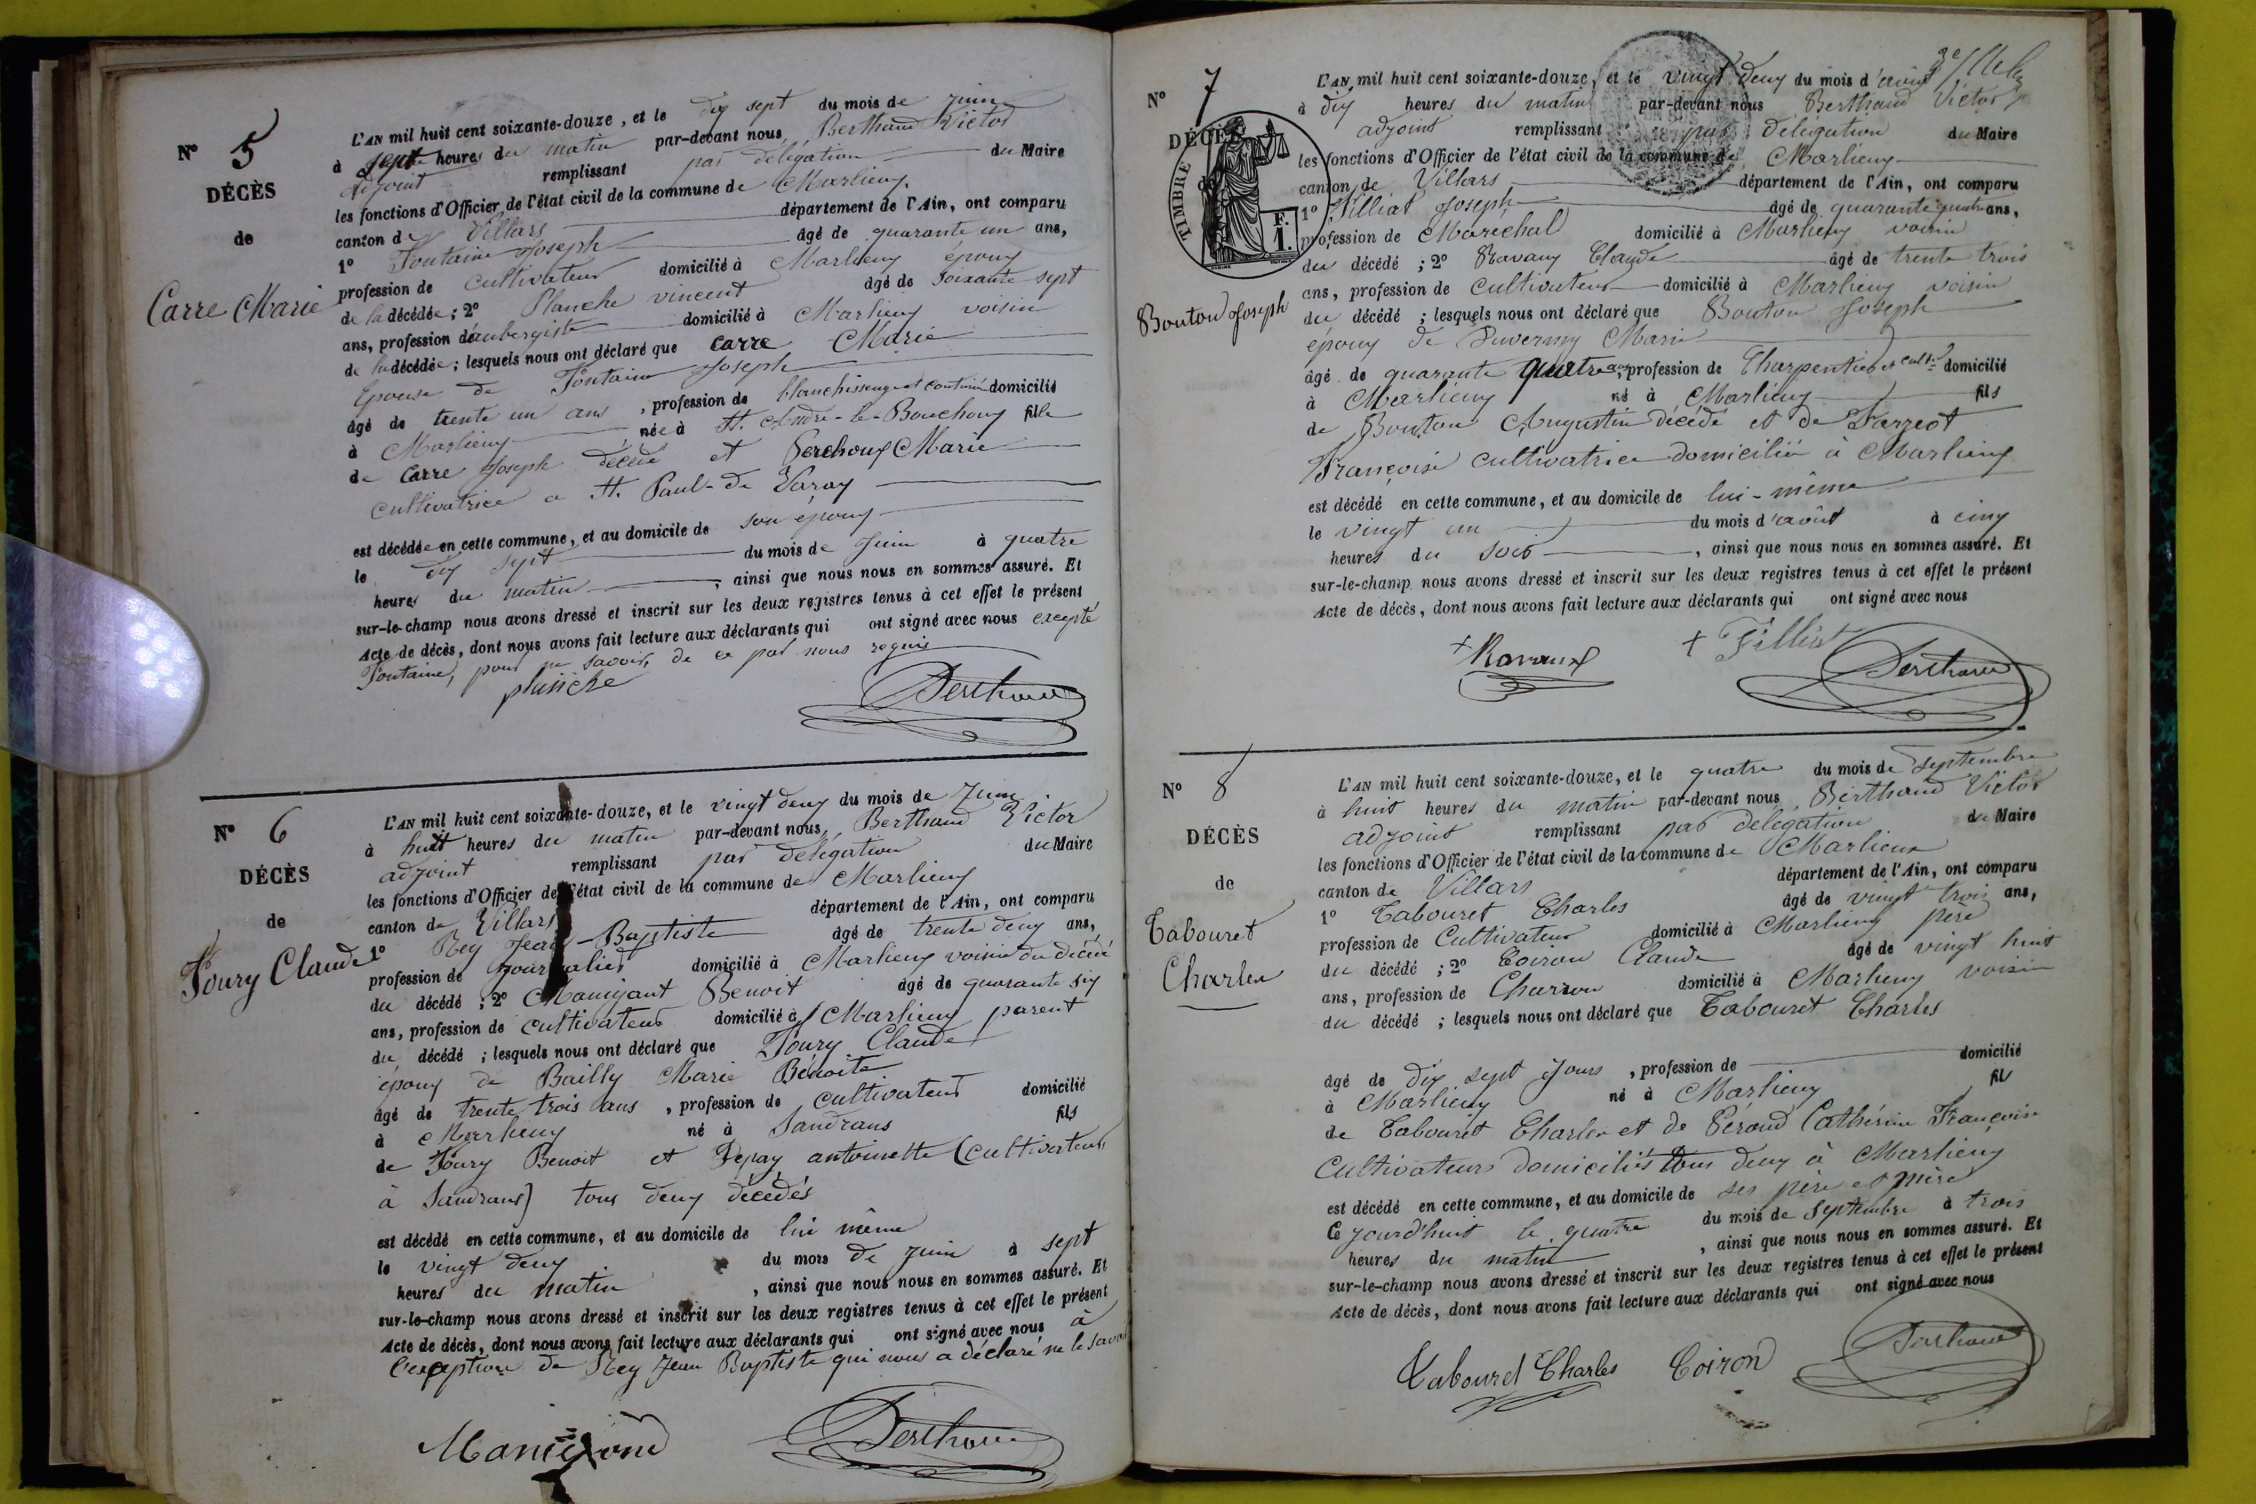 N° 5
DÉCÈS
de
Carre Marie
L'AN mil huit cent soixante-douze, et le dix sept du mois de Juin
à sept heures du matin par-devant nous, Berthaud Victor
adjoint remplissant par délégation du Maire
les fonctions d'Officier de l'état civil de la commune de Marlieux
canton de Villars département de l'Ain, ont comparu
1° Fontaine Joseph âgé de quarante un ans,
profession de cultivateur domicilié à Marlieux époux
de la décédée ; 2° Planche vincent âgé de soixante sept
ans, profession de aubergiste domicilié à Marlieux voisin
de la décédée ; lesquels nous ont déclaré que Carre Marie
Epouse de Fontaine Joseph
âgé de trente un ans, profession de blanchisseuse et domicilié
à Marlieux née à St. André-le-Bouchoux fille
de Carre Joseph décédé et Perchoux Marie
cultivatrice a St. Paul-de Varax
est décédée en cette commune, et au domicile de son époux
le dix sept du mois de Juin à quatre
heures du matin, ainsi que nous nous en sommes assuré. Et
sur-le-champ nous avons dressé et inscrit sur les deux registres tenus à cet effet le présent
Acte de décès, dont nous avons fait lecture aux déclarants qui ont signé avec nous excepté
Fontaine, pour ne savoir, de ce par nous requis
planche Berthaud
N° 6
DÉCÈS
de
Foury Claude
L'AN mil huit cent soixante-douze, et le vingt deux du mois de Juin
à huit heures du matin par-devant nous, Berthaud Victor
adjoint remplissant par délégation du Maire
les fonctions d'Officier de l'état civil de la commune de Marlieux
canton de Villars département de l'Ain, ont comparu
1° Rey Jean-Baptiste âgé de trente deux ans,
profession de journalier domicilié à Marlieux voisin du décédé
du décédé ; 2° Manigant Benoit âgé de quarante six
ans, profession de cultivateur domicilié à Marlieux parent
du décédé ; lesquels nous ont déclaré que Foury Claude
époux de Bailly Marie Benoite
âgé de trente trois ans, profession de cultivateur domicilié
à Marlieux né à Sandrans fils
de Foury Benoit et Depay antoinette (cultivateurs
à Sandrans) tous deux décédés
est décédé en cette commune, et au domicile de lui même
le vingt deux du mois de Juin à sept
heures du matin, ainsi que nous nous en sommes assuré. Et
sur-le-champ nous avons dressé et inscrit sur les deux registres tenus à cet effet le présent
Acte de décès, dont nous avons fait lecture aux déclarants qui ont signé avec nous à
l'exception de Rey Jean Baptiste qui nous a déclaré ne le savoir
Berthaud
N° 7
DÉCÈS
de
TIMBRE
F.
1.
Bouton Joseph
L'AN mil huit cent soixante-douze, et le vingt deux du mois d'août
à dix heures du matin par-devant nous Berthaud Victor
adjoint remplissant par délégation du Maire
les fonctions d'Officier de l'état civil de la commune de Marlieux
canton de Villars département de l'Ain, ont comparu
1° Filliat Joseph âgé de quarante quatre ans,
profession de Maréchal domicilié à Marlieux voisin
du décédé ; 2° Ravaux Claude âgé de trente trois
ans, profession de cultivateur domicilié à Marlieux voisin
du décédé ; lesquels nous ont déclaré que Bouton Joseph
époux de Duvernay Marie
âgé de quarante quatre ans, profession de Charpentier et cult. domicilié
à Marlieux né à Marlieux fils
de Bouton Augustin décédé et de Darreot
Françoise cultivatrice domiciliée à Marlieux
est décédé en cette commune, et au domicile de lui-même
le vingt un du mois d'août à cinq
heures du soir, ainsi que nous nous en sommes assuré. Et
sur-le-champ nous avons dressé et inscrit sur les deux registres tenus à cet effet le présent
Acte de décès, dont nous avons fait lecture aux déclarants qui ont signé avec nous
+ Ravaux + Filliat Berthaud
N° 8
DÉCÈS
de
Tabouret
Charles
L'AN mil huit cent soixante-douze, et le quatre du mois de septembre
à huit heures du matin par-devant nous, Berthaud Victor
adjoint remplissant par délégation du Maire
les fonctions d'Officier de l'état civil de la commune de Marlieux
canton de Villars département de l'Ain, ont comparu
1° Tabouret Charles âgé de vingt trois ans,
profession de Cultivateur domicilié à Marlieux père
du décédé ; 2° Coiron Claude âgé de vingt huit
ans, profession de Charron domicilié à Marlieux voisin
du décédé ; lesquels nous ont déclaré que Tabouret Charles
âgé de dix sept jours, profession de domicilié
à Marlieux né à Marlieux fils
de Tabouret Charles et de Péraud Cathérine Françoise
Cultivateurs domiciliés tous deux à Marlieux
est décédé en cette commune, et au domicile de ses père et mère
Ce jourd'huit le quatre du mois de septembre à trois
heures du matin, ainsi que nous nous en sommes assuré. Et
sur-le-champ nous avons dressé et inscrit sur les deux registres tenus à cet effet le présent
Acte de décès, dont nous avons fait lecture aux déclarants qui ont signé avec nous
Tabouret Charles Coiron Berthaud